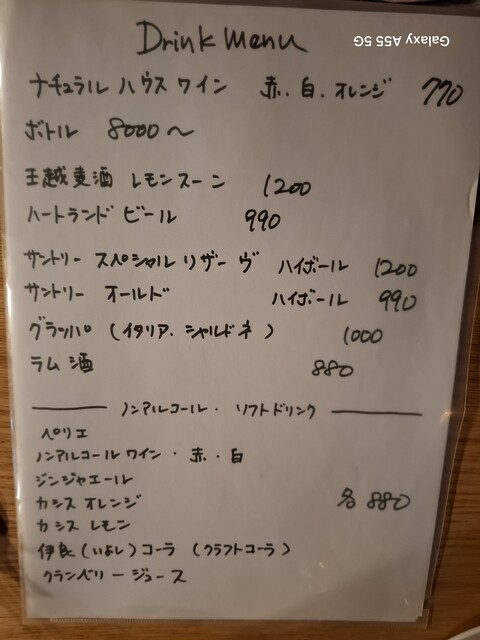 Drink Menu
Galaxy A55 5G
ナチュラル ハウス ワイン 赤. 白. オレンジ 770
ボトル 8000〜
王越麦酒 レモンスーン 1200
ハートランド ビール 990
サントリー スペシャル リザーヴ ハイボール 1200
サントリー オールド ハイボール 990
グラッパ (イタリア. シャルドネ) 1000
ラム酒 880
ノンアルコール・ソフトドリンク
ペリエ
ノンアルコールワイン・赤・白
ジンジャエール
カシス オレンジ 各 880
カシス レモン
伊良(いよし)コーラ (クラフトコーラ)
クランベリージュース